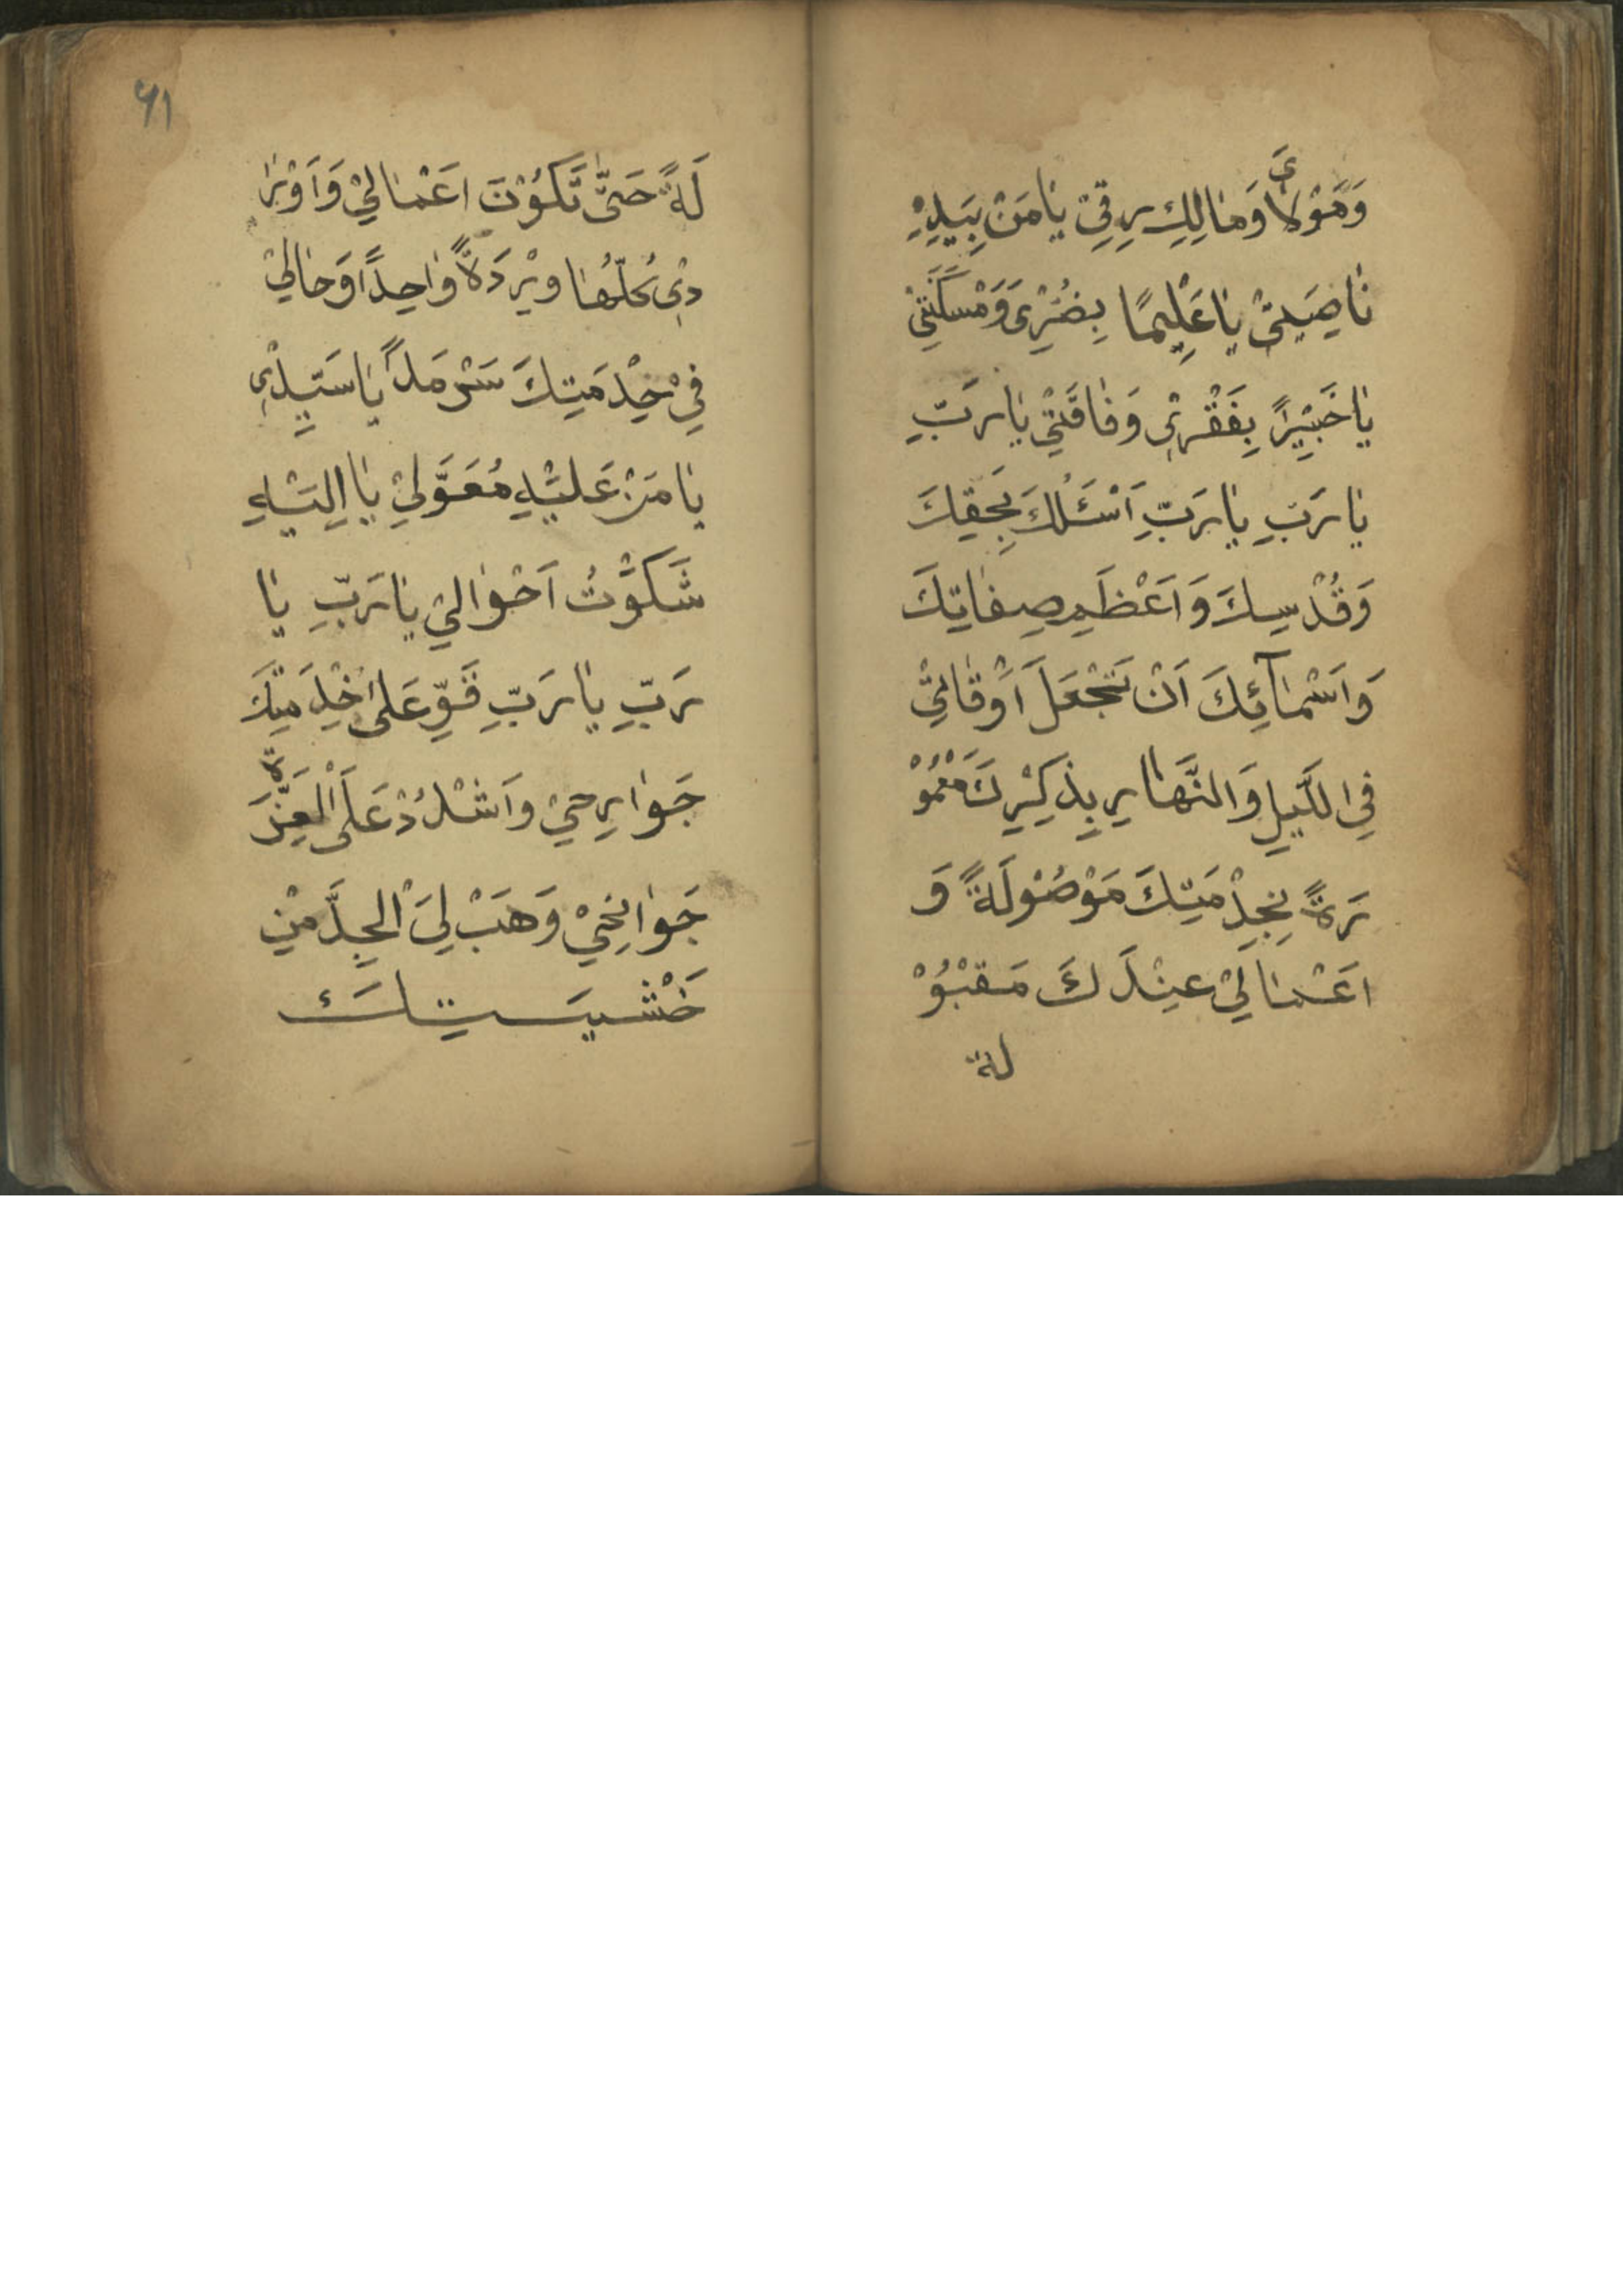 وَمَوْلايَ وَمالِكِ رِقّي يا مَنْ بِيَدِهْ
ناصِيَتي يا عَليمًا بِضُرّي وَمَسْكَنَتي
يا خَبيرًا بِفَقْري وَفاقَتي يا رَبِّ
يا رَبِّ يا رَبِّ اَسْئَلُكَ بِحَقِكَ
وَقُدْسِكَ وَاَعْظَمِ صِفاتِكَ
وَاَسْمآئِكَ اَنْ تَجْعَلَ اَوْقاتي
فِي اللَّيلِ وَالنَّهارِ بِذِكْرِكَ مَعْمُوْ
رَةً بِخِدْمَتِكَ مَوْصُوْلَةً وَ
اَعْمالي عِنْدَكَ مَقْبُوْ
لة
٤١
لَةً حَتّى تَكُوْنَ اَعْمالي وَاَوْرا
دي كُلُّها وِرْدَاً واحِدًا وَحالي
في خِدْمَتِكَ سَرْمَدًا يا سَيِّدي
يا مَنْ عَلَيْهِ مُعَوَّلي يا اِلَيْهِ
شَكَوْتُ اَحْوالي يا رَبِّ يا
رَبِّ يا رَبِّ قَوِّ عَلى خِدْمَتِكَ
جَوارِحي وَاشْدُدْ عَلَى الْعَزيْمَةِ
جَوانِحي وَهَبْ لِيَ الْجِدَّ في
خَشْيَتِكَ